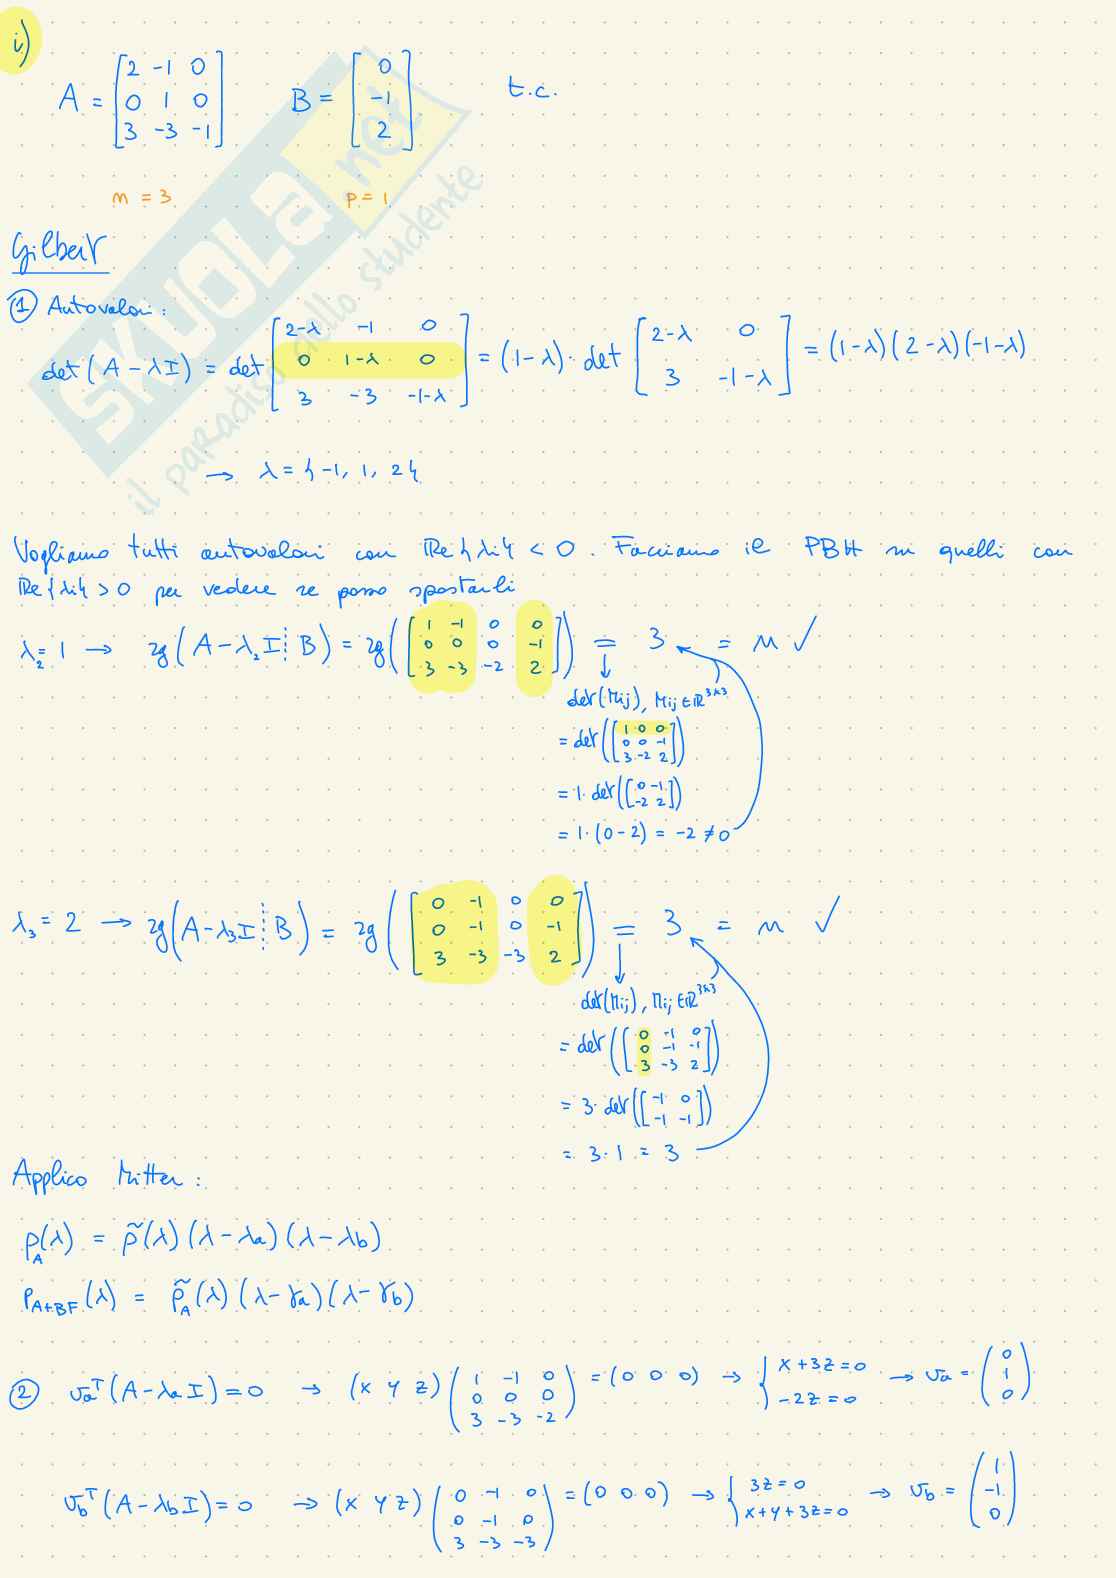 i)
A = [2 -1 0; 0 1 0; 3 -3 -1] B = [0; -1; 2] t.c.
n = 3 p = 1
Gilbert
① Autovalori:
det(A - λI) = det [2-λ -1 0; 0 1-λ 0; 3 -3 -1-λ] = (1-λ) · det [2-λ 0; 3 -1-λ] = (1-λ)(2-λ)(-1-λ)
→ λ = {-1, 1, 2}
Vogliamo tutti autovalori con Re{λi} < 0. Facciamo il PBH su quelli con
Re{λi} > 0 per vedere se posso spostarli
λ₂ = 1 → rg(A - λ₂I ⋮ B) = rg([1 -1 0 0; 0 0 0 -1; 3 -3 -2 2]) = 3 = n ✓
det(Mij), Mij ∈ ℝ³ˣ³
= det([1 0 0; 0 0 -1; 3 -2 2])
= 1· det([0 -1; -2 2])
= 1·(0-2) = -2 ≠ 0
λ₃ = 2 → rg(A - λ₃I ⋮ B) = rg([0 -1 0 0; 0 -1 0 -1; 3 -3 -3 2]) = 3 = n ✓
det(Mij), Mij ∈ ℝ³ˣ³
= det([0 -1 0; 0 -1 -1; 3 -3 2])
= 3· det([-1 0; -1 -1])
= 3·1 = 3
Applico Mitter:
p_A(λ) = p̃(λ)(λ-λa)(λ-λb)
P_A+BF(λ) = p̃_A(λ)(λ-γa)(λ-γb)
② vaᵀ(A-λaI) = 0 → (x y z)(1 -1 0; 0 0 0; 3 -3 -2) = (0 0 0) → { x+3z=0; -2z=0 → va = (0; 1; 0)
vbᵀ(A-λbI) = 0 → (x y z)(0 -1 0; 0 -1 0; 3 -3 -3) = (0 0 0) → { 3z=0; x+y+3z=0 → vb = (1; -1; 0)
SKUOLA.net
il paradiso dello studente